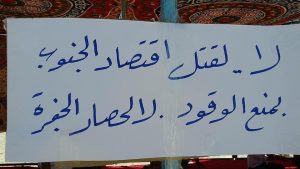 لا يلقتل اقتصاد الجنوب
بمنع الوقود . لا لحصار الجفرة